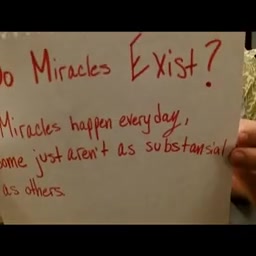 Do Miracles Exist?
Miracles happen everyday,
some just aren't as substansial
as others.